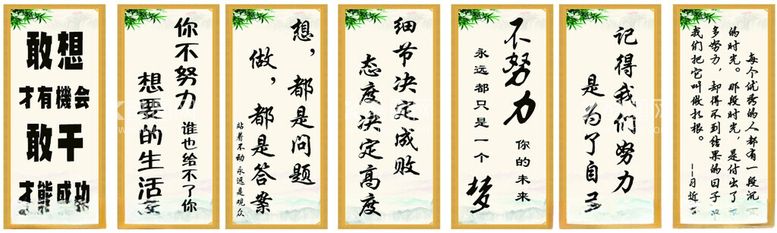 敢想
才有機会
敢干
才能成功
你不努力 谁也给不了你
想要的生活
想，都是问题
做，都是答案
站着不动永远是观众
细节决定成败
态度决定高度
不努力 你的未来
永远都只是一个梦
记得我们努力
是为了自己
每个优秀的人都有一段沉
的时光。那段时光，是付出了
多努力，却得不到结果的日子
我们把它叫做扎根。
--习近